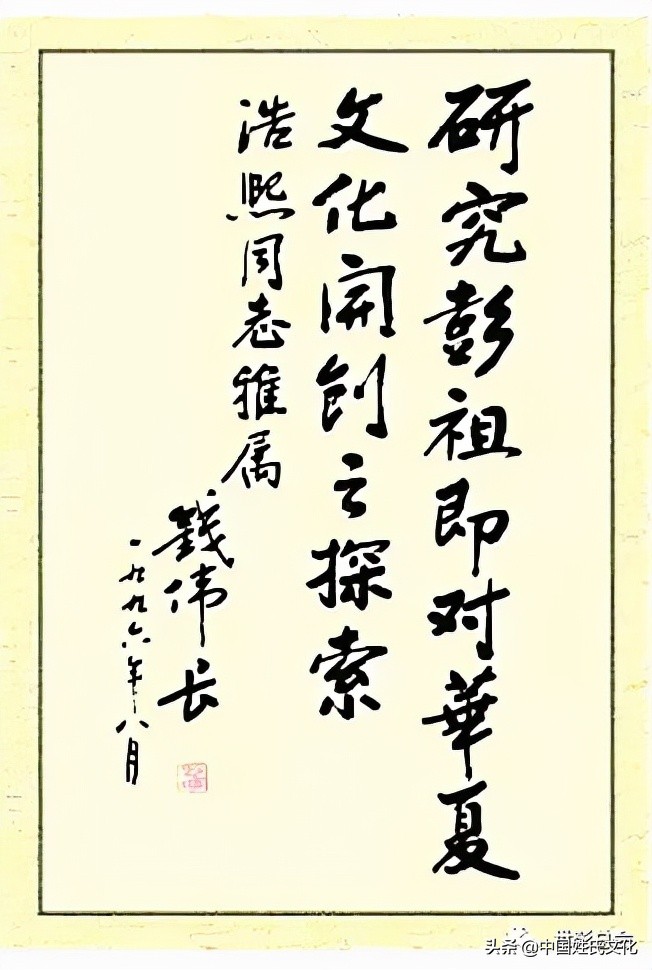 研究彭祖即对華夏
文化開创之探索
浩熙同志雅属
钱伟长
一九九六年八月
头条@中国姓氏文化